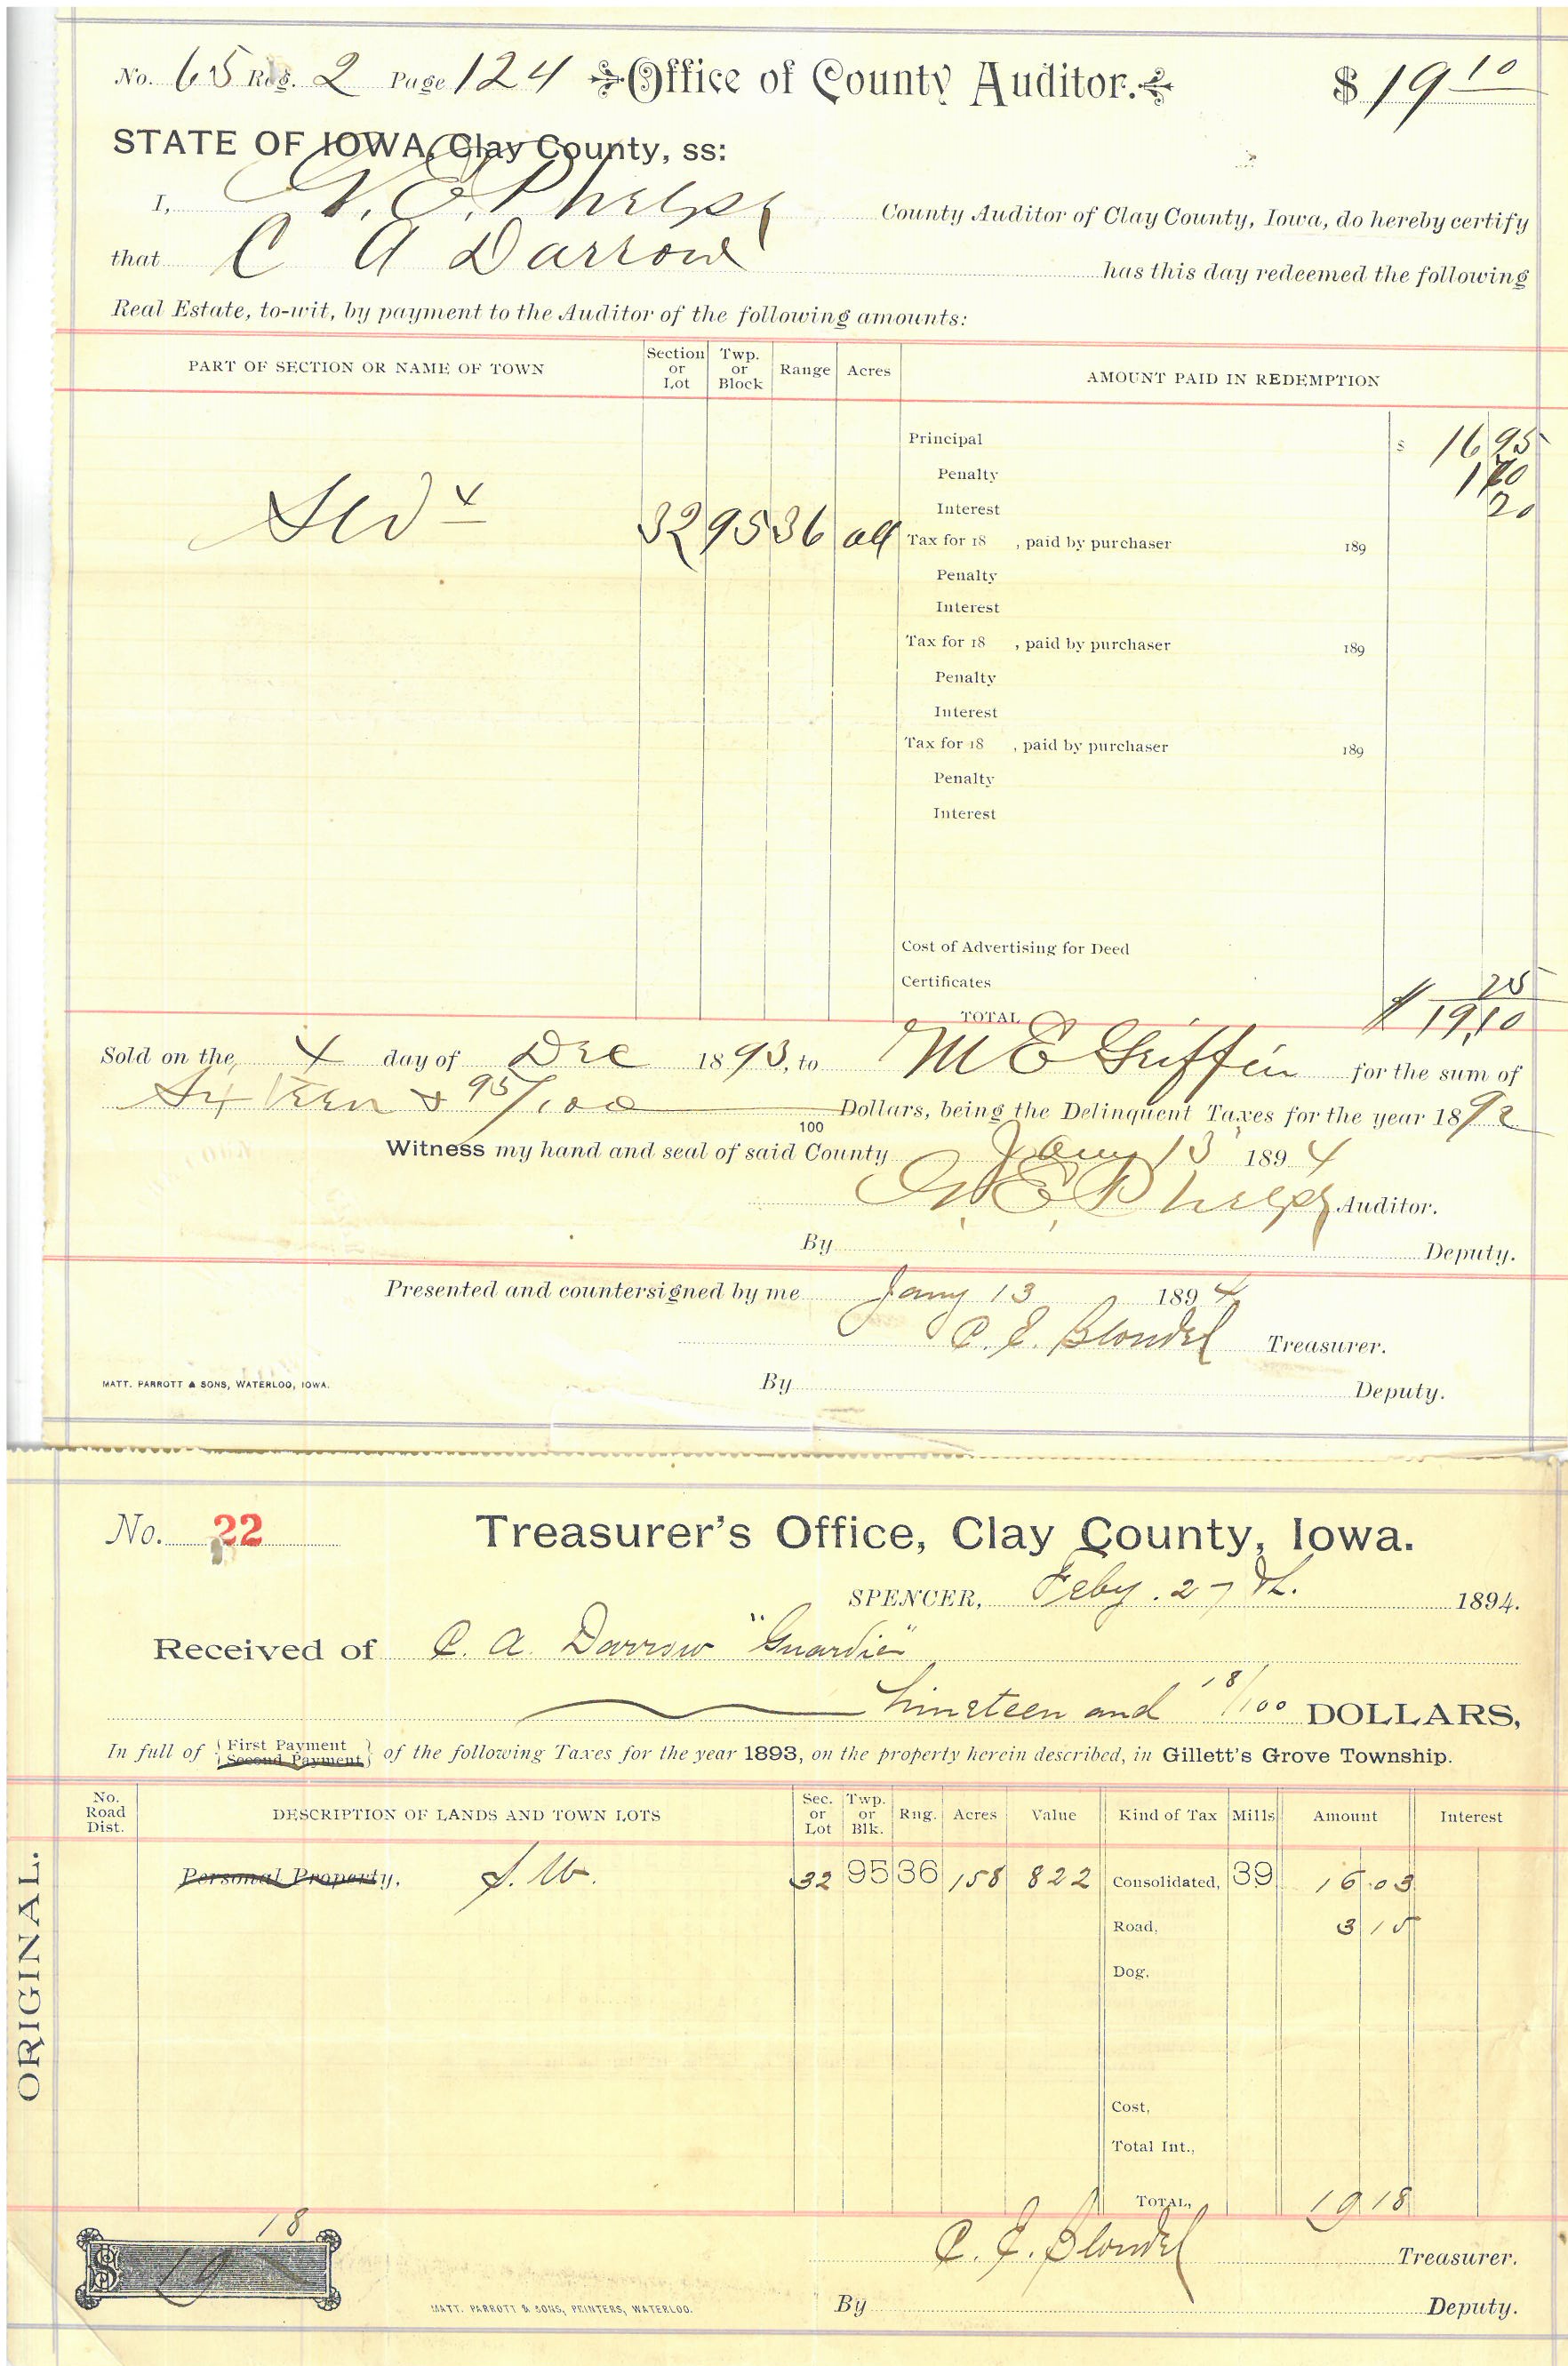 No. 65 Reg. 2 Page 124 Office of County Auditor. $ 19 10
STATE OF IOWA, Clay County, ss:
I, G. E. Phelps County Auditor of Clay County, Iowa, do hereby certify
that C A Darrow has this day redeemed the following
Real Estate, to-wit, by payment to the Auditor of the following amounts:
PART OF SECTION OR NAME OF TOWN Section or Lot Twp. or Block Range Acres AMOUNT PAID IN REDEMPTION
Principal $ 16 95
Penalty 1 70
Interest 20
SW 4 32 95 36 all Tax for 18 , paid by purchaser 189
Penalty
Interest
Tax for 18 , paid by purchaser 189
Penalty
Interest
Tax for 18 , paid by purchaser 189
Penalty
Interest
Cost of Advertising for Deed
Certificates 25
TOTAL $ 19,10
Sold on the 4 day of Dec 1893, to M E Griffin for the sum of
Sixteen & 95/100 Dollars, being the Delinquent Taxes for the year 1892
100
Witness my hand and seal of said County Jany 13 1894
G. E. Phelps Auditor.
By Deputy.
Presented and countersigned by me Jany 13 1894
C. E. Blondel Treasurer.
MATT. PARROTT & SONS, WATERLOO, IOWA.
By Deputy.
No. 22 Treasurer's Office, Clay County, Iowa.
SPENCER, Feby. 27th. 1894.
Received of C. A. Darrow "Guardian"
Nineteen and 18/100 DOLLARS,
In full of First Payment Second Payment of the following Taxes for the year 1893, on the property herein described, in Gillett's Grove Township.
No. Road Dist. DESCRIPTION OF LANDS AND TOWN LOTS Sec. or Lot Twp. or Blk. Rng. Acres Value Kind of Tax Mills Amount Interest
ORIGINAL.
Personal Property. S.W. 32 95 36 158 822 Consolidated, 39 16.03
Road, 3 15
Dog.
Cost,
Total Int.,
TOTAL, 19 18
$ 19 18
C. E. Blondel Treasurer.
MATT. PARROTT & SONS, PRINTERS, WATERLOO.
By Deputy.